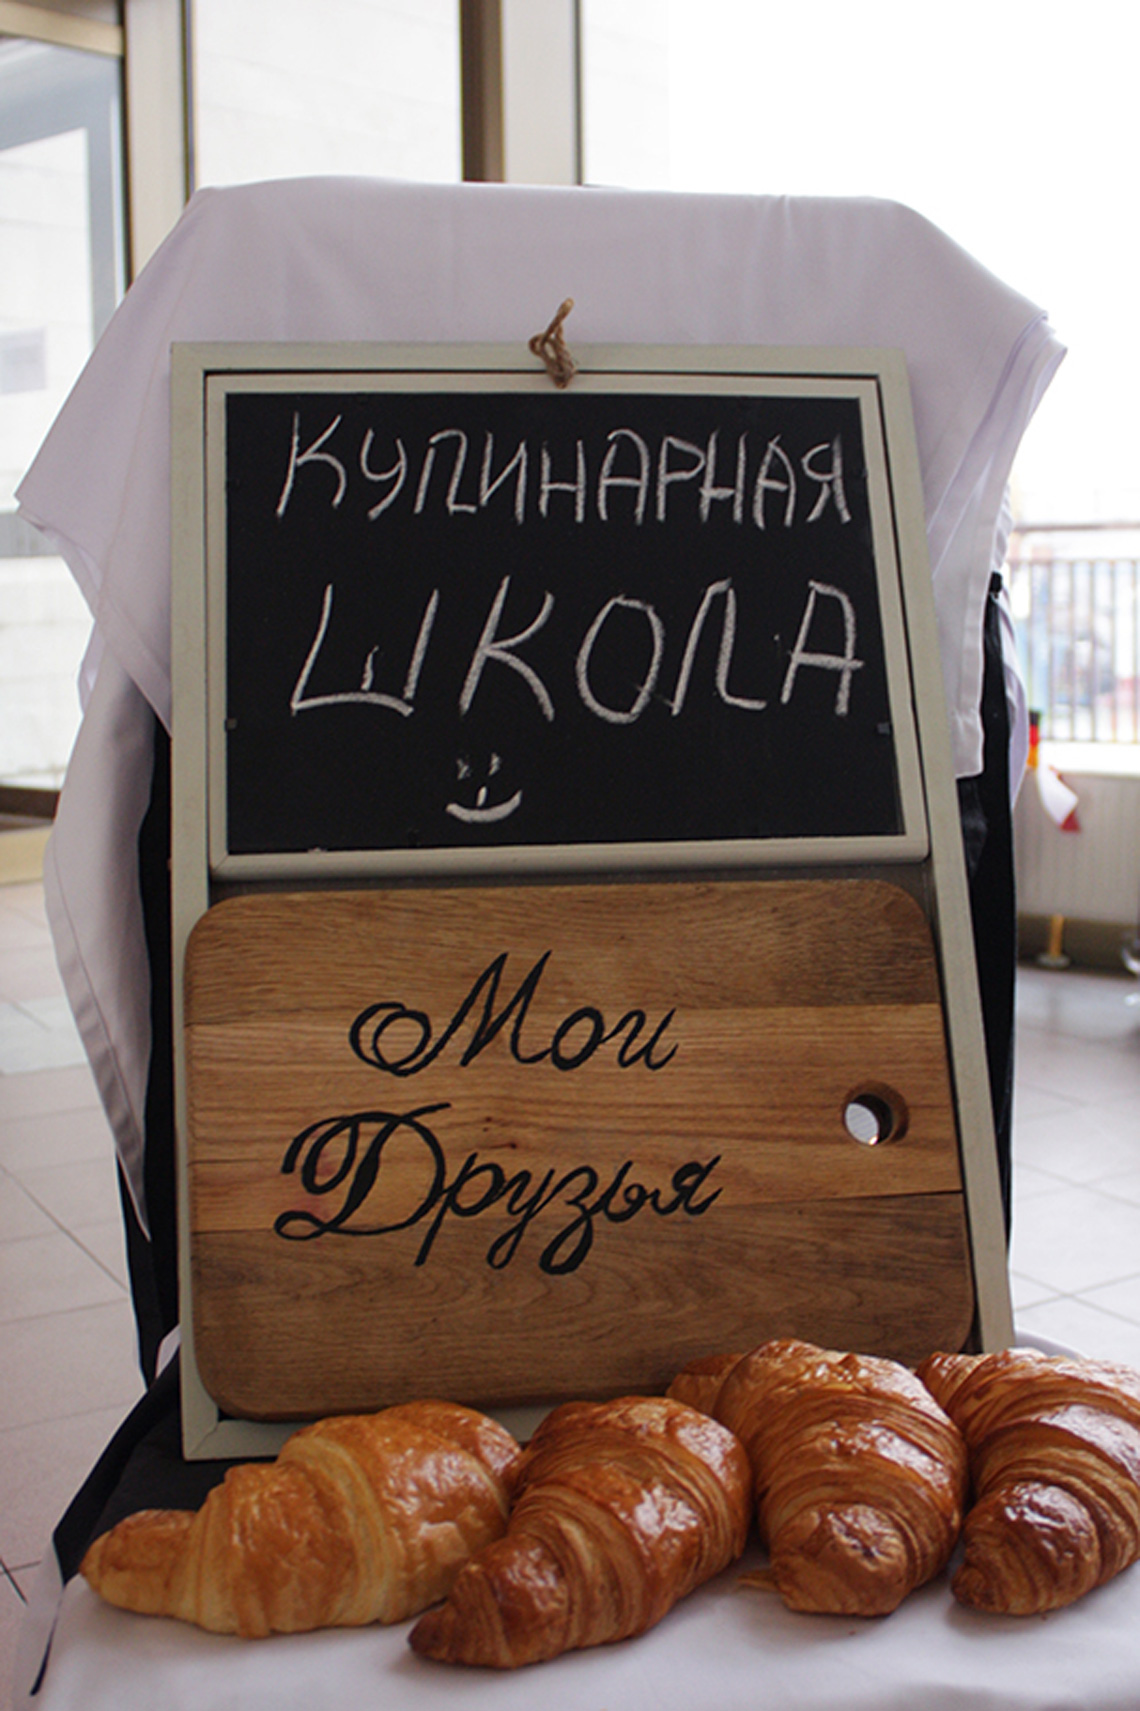 КУЛИНАРНАЯ
ШКОЛА
Мои
Друзья